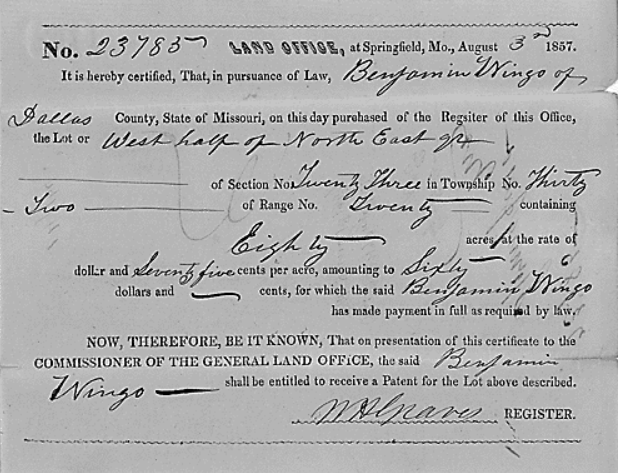 No. 23785 LAND OFFICE, at Springfield, Mo., August 3d 1857.
It is hereby certified, That, in pursuance of Law, Benjamin Wingo of
Dallas County, State of Missouri, on this day purchased of the Regsiter of this Office,
the Lot or West half of North East qr
of Section No. Twenty Three in Township No. Thirty
- Two of Range No. Twenty containing
Eighty acres, at the rate of
dollar and Seventy five cents per acre, amounting to Sixty
dollars and cents, for which the said Benjamin Wingo
has made payment in full as required by law.
NOW, THEREFORE, BE IT KNOWN, That on presentation of this certificate to the
COMMISSIONER OF THE GENERAL LAND OFFICE, the said Benjamin
Wingo shall be entitled to receive a Patent for the Lot above described.
W H Graves REGISTER.